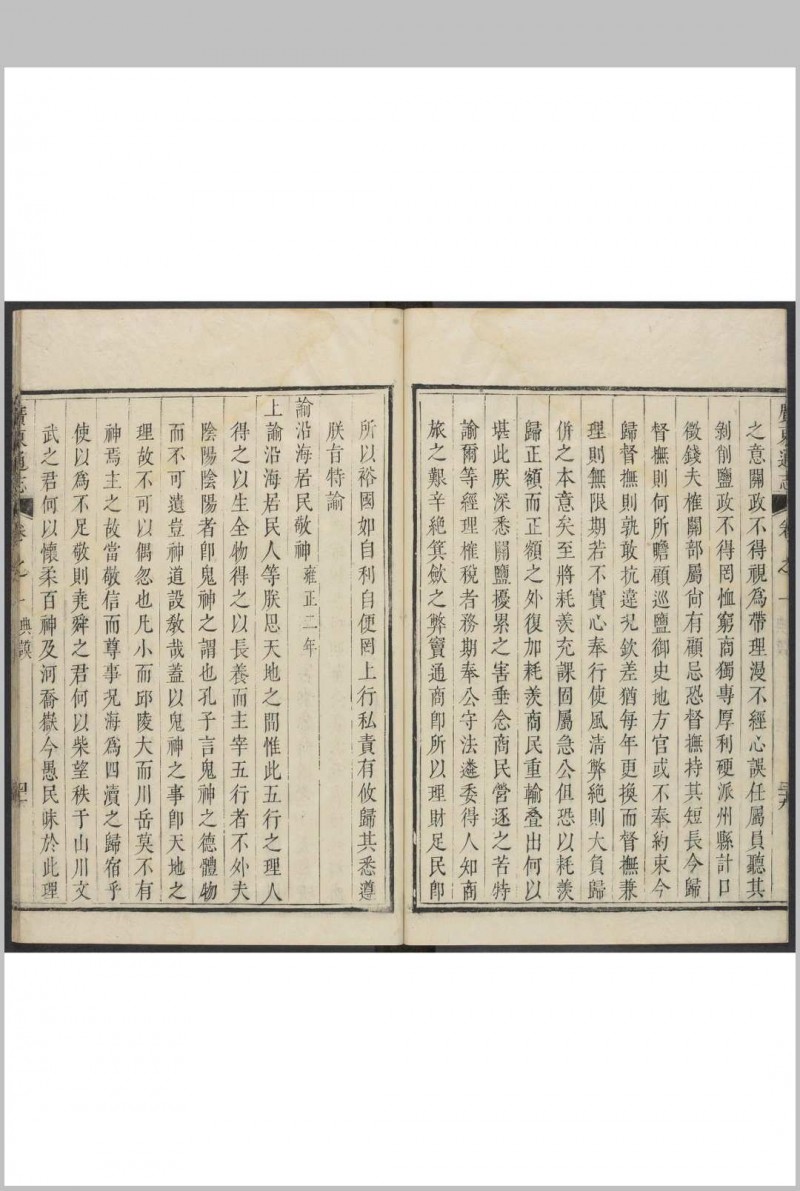 廣東通志 卷之一
之意關政不得視為帶理漫不經心誤任屬員聽其
剝削鹽政不得罔恤窮商獨專厚利硬派州縣計口
徵錢夫榷關部屬尙有顧忌恐督撫持其短長今歸
督撫則何所瞻顧巡鹽御史地方官或不奉約束今
歸督撫則孰敢抗違況欽差猶每年更換而督撫兼
理則無限期若不實心奉行使風清弊絶則大負歸
併之本意矣至將耗羨充課固屬急公但恐以耗羨
歸正額而正額之外復加耗羨商民重輸叠出何以
堪此朕深悉關鹽擾累之害垂念商民營逐之苦特
諭爾等經理榷稅者務期奉公守法遴委得人知商
旅之艱辛絶箕斂之弊竇通商卽所以理財足民卽
所以裕國如自利自便罔上行私責有攸歸其悉遵
朕旨特諭
諭沿海居民敬神 雍正二年
上諭沿海居民人等朕思天地之間惟此五行之理人
得之以生全物得之以長養而主宰五行者不外夫
陰陽陰陽者卽鬼神之謂也孔子言鬼神之德體物
而不可遺豈神道設敎哉蓋以鬼神之事卽天地之
理故不可以偶忽也凡小而邱陵大而川岳莫不有
神焉主之故當敬信而尊事況海為四瀆之歸宿乎
使以爲不足敬則堯舜之君何以柴望秩于山川文
武之君何以懷柔百神及河喬嶽今愚民昧於此理
廣東通志 卷之一 典謨